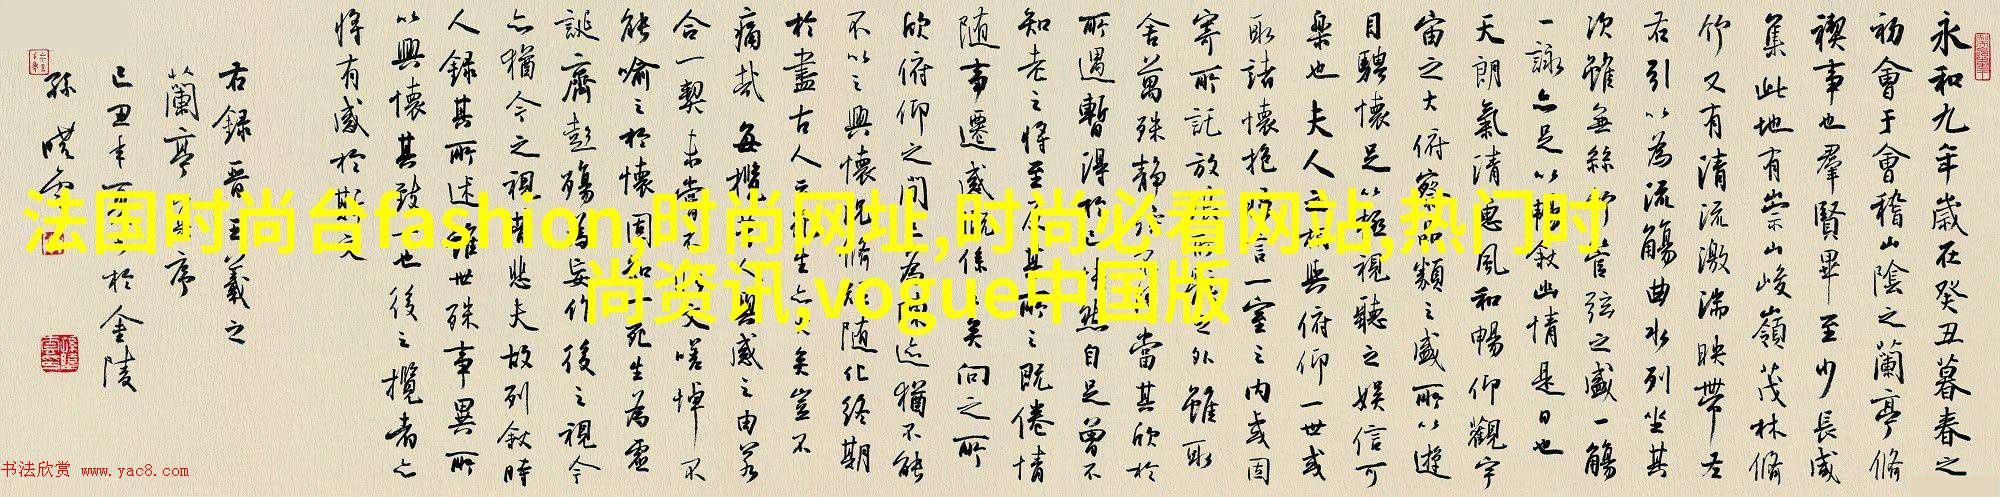 永和九年歲在癸丑暮春之
初會于會稽山陰之蘭亭脩
禊事也羣賢畢至少長咸
集此地有崇山峻嶺茂林脩
竹又有清流激湍映帶左
右引以為流觴曲水列坐其
次雖無絲竹管弦之盛一觴
一詠亦足以暢敘幽情是日也
天朗氣清惠風和暢仰觀宇
宙之大俯察品類之盛所以遊
目騁懷足以極視聽之娛信可
樂也夫人之相與俯仰一世或
取諸懷抱悟言一室之內或因
寄所託放浪形骸之外雖取
舍萬殊靜躁不同當其欣於
所遇暫得於己快然自足曾不
知老之將至及其所之既倦情
隨事遷感慨係之矣向之所
欣俯仰之間已為陳迹猶不能
不以之興懷況脩短隨化終期
於盡古人云死生亦大矣豈不
痛哉每攬昔人興感之由若
合一契未嘗不臨文嗟悼不
能喻之於懷固知一死生為虛
誕齊彭殤為妄作後之視今
亦猶今之視昔悲夫故列敘時
人錄其所述雖世殊事異所
以興懷其致一也後之攬者亦
將有感於斯文
右錄晉王羲之
蘭亭序
己丑年
於金陵
孫曉雲
法国时尚台fashion,时尚网址,时尚必看网站,热门时
尚资讯,vogue中国版
书法欣赏 www.yac8.com